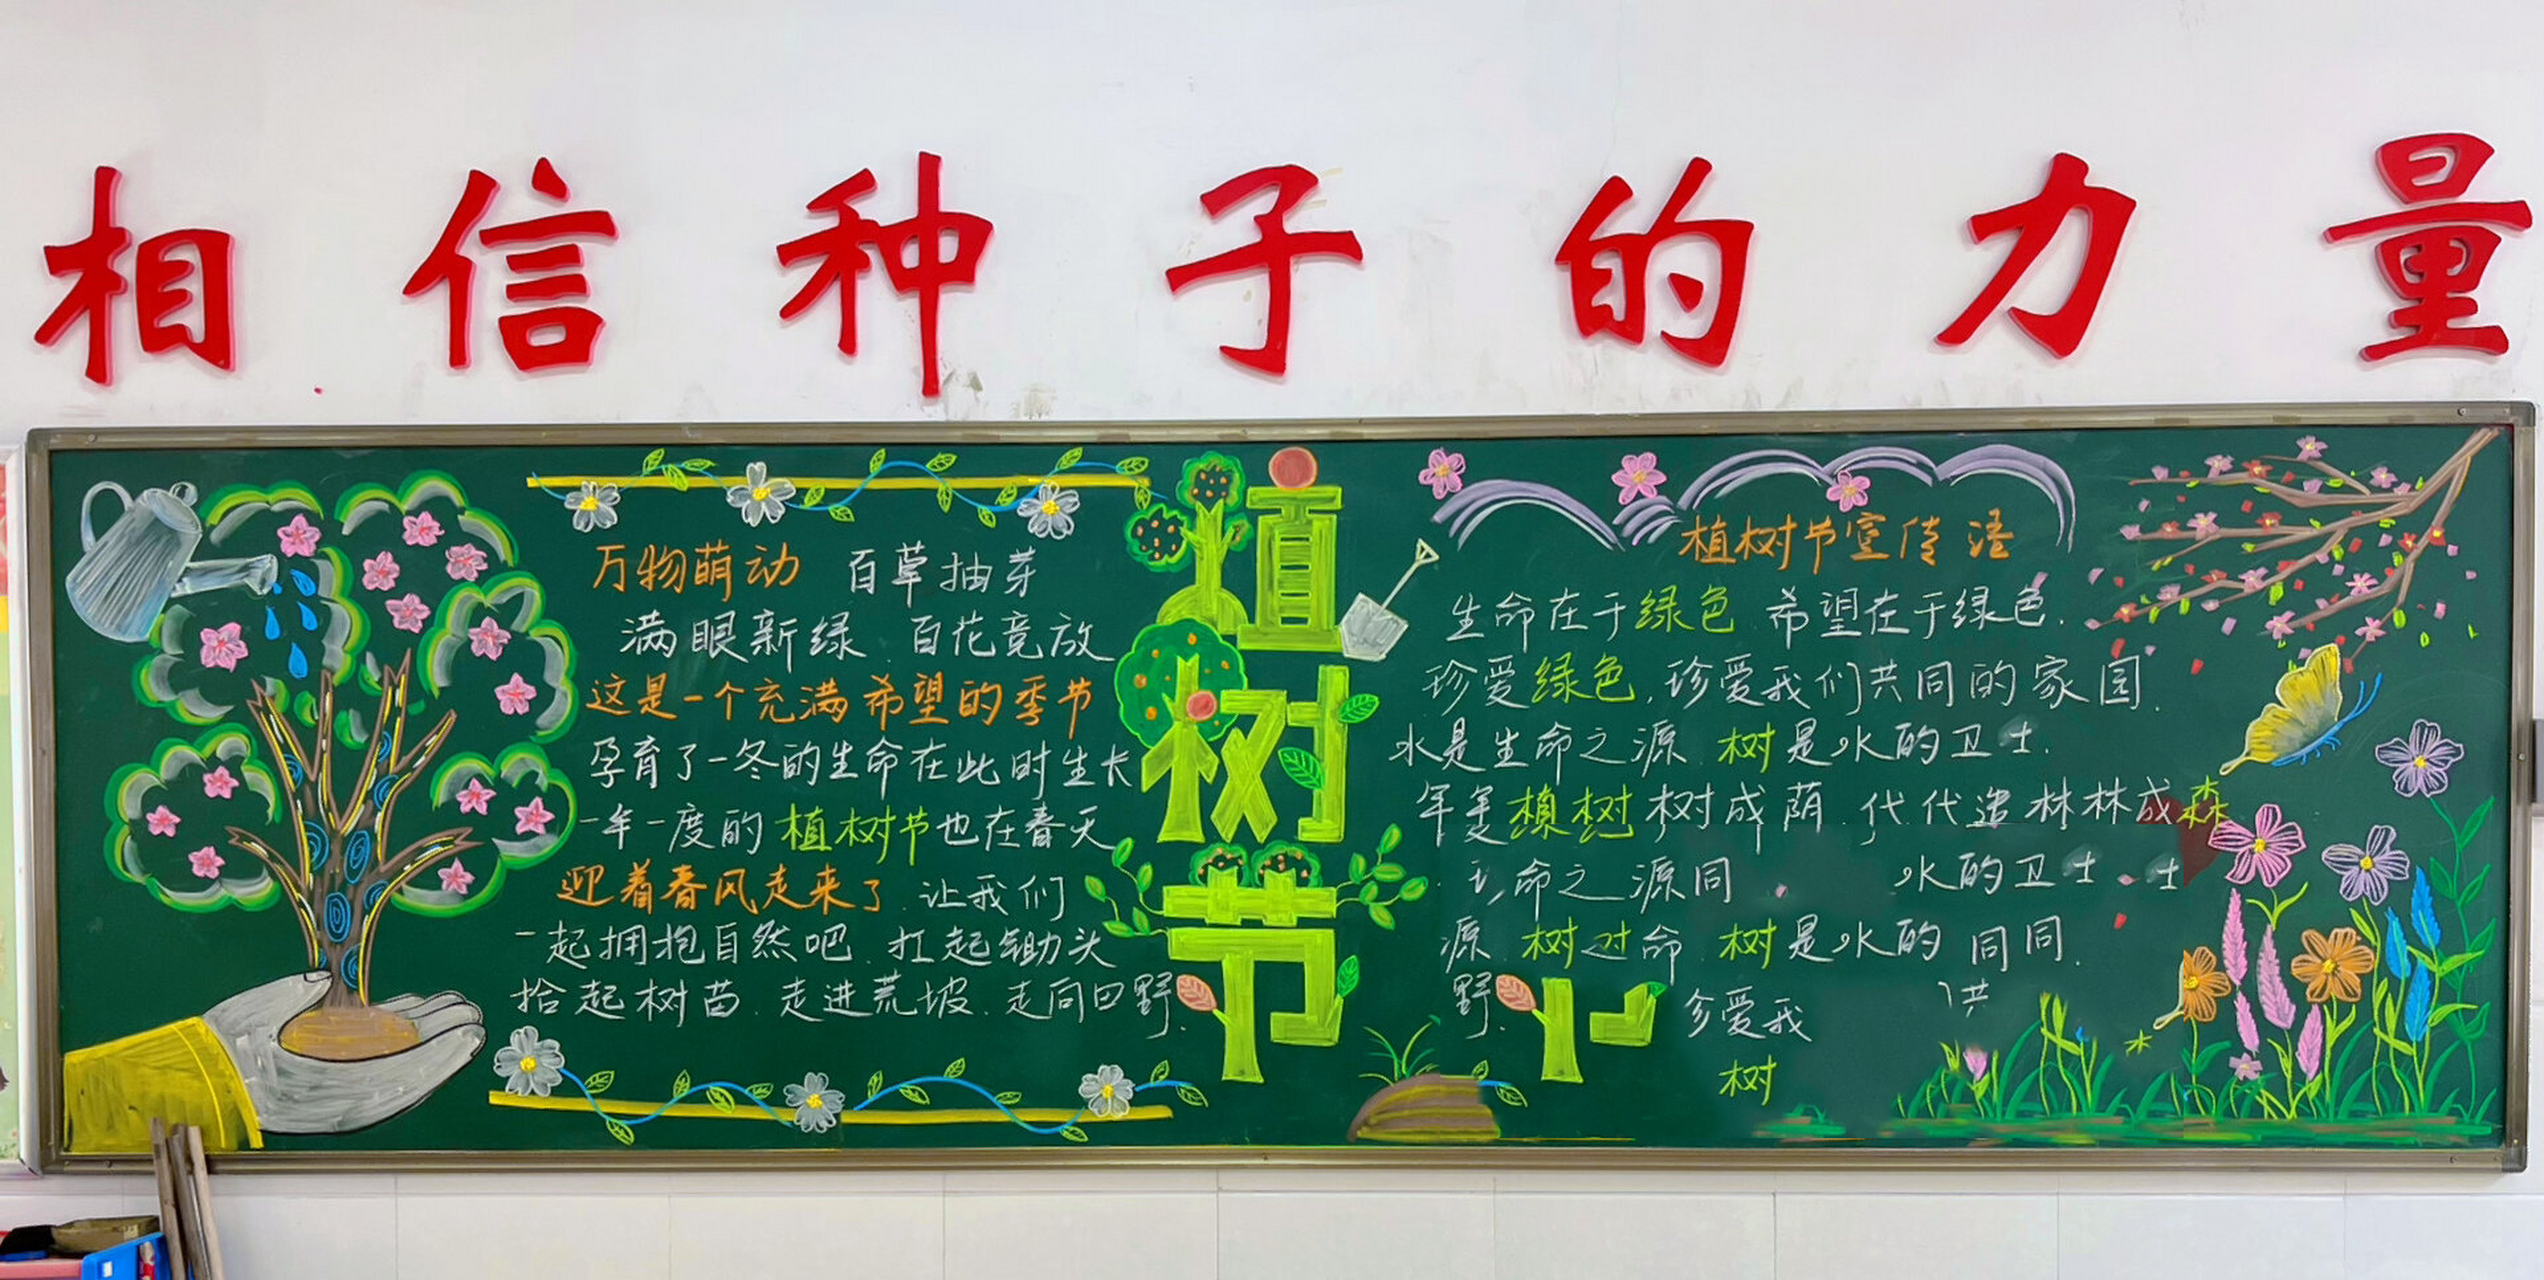 相信种子的力量
万物萌动 百草抽芽
满眼新绿 百花竞放
这是一个充满希望的季节
孕育了一冬的生命在此时生长
一年一度的植树节也在春天
迎着春风走来了.让我们
一起拥抱自然吧.扛起锄头
拾起树苗.走进荒坡.走向田野.
植树节
植树节宣传语
生命在于绿色.希望在于绿色.
珍爱绿色,珍爱我们共同的家园.
水是生命之源 树是水的卫士.
年年植树树成荫.代代造林林成森
命之源同 水的卫士.士
源.树过命.树是水的同同.
野. 珍爱我 共
树